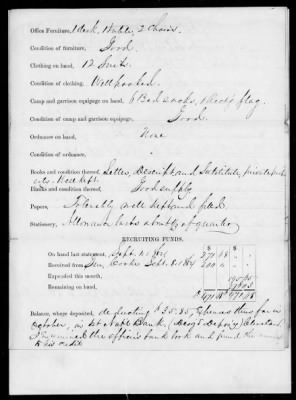 Office Furniture, 1 Desk, 1 table, 2 Chairs.
Condition of furniture, Good.
Clothing on hand, 12 Suits.
Condition of clothing, Well packed.
Camp and garrison equipage on hand, 6 Bed sacks, 1 Recg flag.
Condition of camp and garrison equipage, Good.
Ordnance on hand, None
Condition of ordnance,
Books and condition thereof, Letter, Descript, and Substitute,
Well Kept.
Blanks and condition thereof, Good supply
Papers, well kept and filed
Stationery, Allowance lasts quarter
RECRUITING FUNDS.
$ $
On hand last statement, Sept.
Received from Gen. Cooke Sept.
Expended this month,
Remaining on hand,
Balance, where deposited, deducting $35.85, expenses thus far in
October, in 1st Natl Bank, Cleveland
I examined the officer's bank book and found the
to his credit